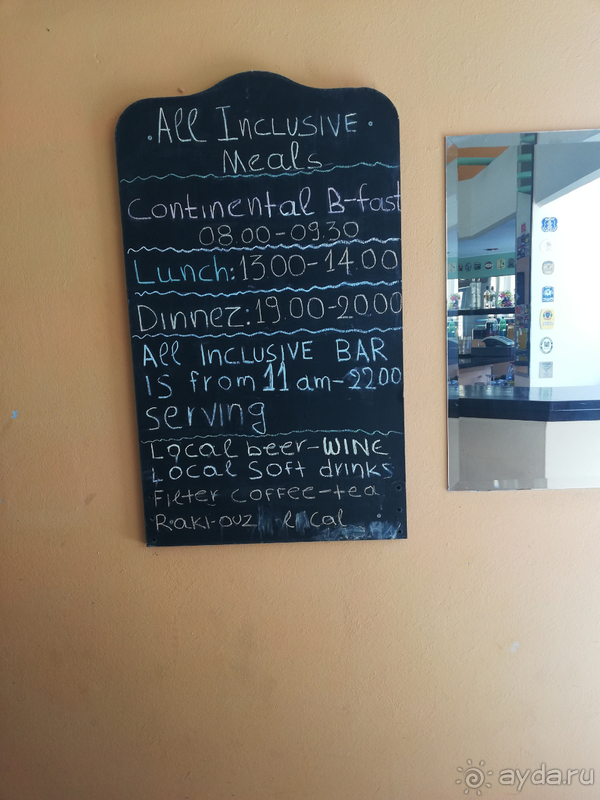 · ALL INCLUSIVE ·
MEALS
CONTINENTAL B-fast
08.00-09.30
Lunch: 13.00-14.00
Dinner: 19.00-20.00
ALL INCLUSIVE BAR
IS from 11 am-22.00
serving
Local beer-WINE
Local Soft drinks
Filter coffee-tea
Raki-ouz
ayda.ru